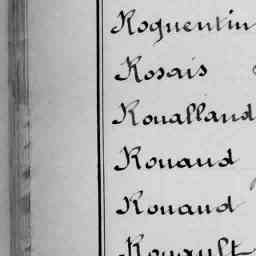 Roquentin
Rosais
Roualland
Rouaud
Rouaud
Rouault